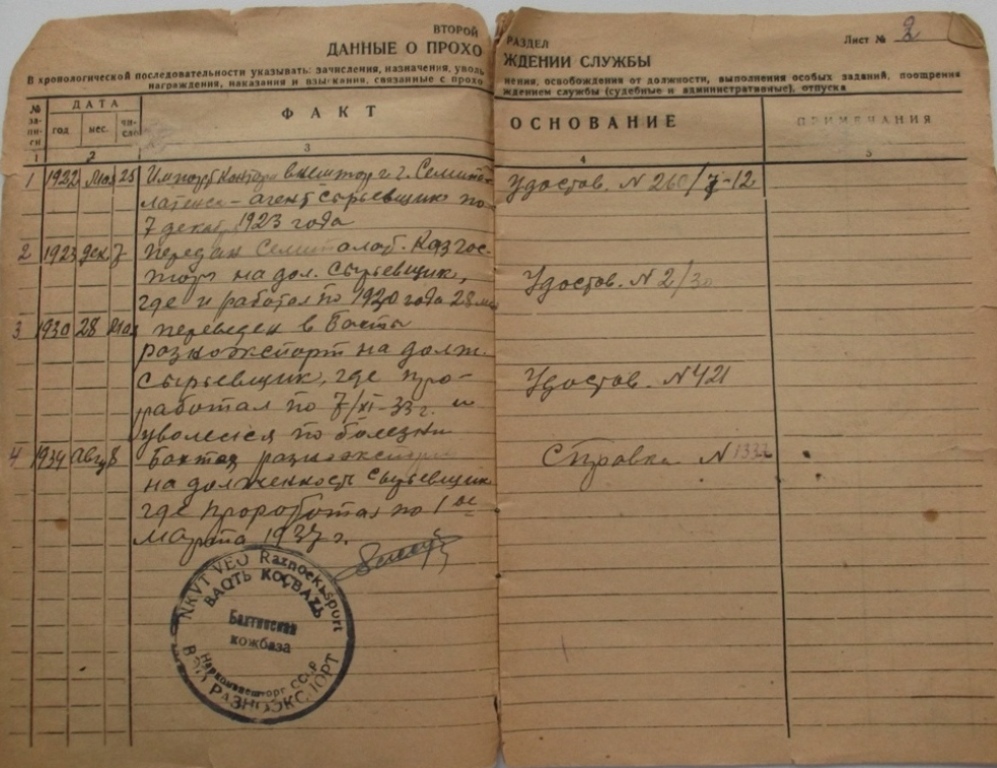 ВТОРОЙ РАЗДЕЛ
Лист № 2
ДАННЫЕ О ПРОХОЖДЕНИИ СЛУЖБЫ
В хронологической последовательности указывать: зачисления, назначения, уволь нения, освобождения от должности, выполнения особых заданий, поощрения
награждения, наказания и взыскания, связанные с прохо ждением службы (судебные и административные), отпуска
№ за- пи- си
ДАТА
год мес. чи- сло
ФАКТ
ОСНОВАНИЕ
ПРИМЕЧАНИЯ
1 2 3 4 5
1 1922 Мая 25 Импорт Контора г. Семипа-
латенск - агент сырьевщик по
7 декаб. 1923 года
Удостов. N 260/7-12
2 1923 дек. 7 Передан Семипалат. Казгос-
торг на дол. сырьевщик,
где и работал по 1930 года 28 мая
Удостов. N 2/30
3 1930 28 Мая переведен в Бахты
разноэкспорт на долж.
сырьевщик, где про-
работал по 7/XI-33 г. и
уволился по болезни
Удостов. N 421
4 1934 Авг 8 Бахты разноэкспорт
на должность сырьевщик
где проработал по 1 ое
марта 1937 г.
Справка N
NKVT VEO Raznoeksport
BAQTЬ KOƢBAZЬ
Бахтинская
кожбаза
Наркомвнешторг СССР
В/О РАЗНОЭКСПОРТ